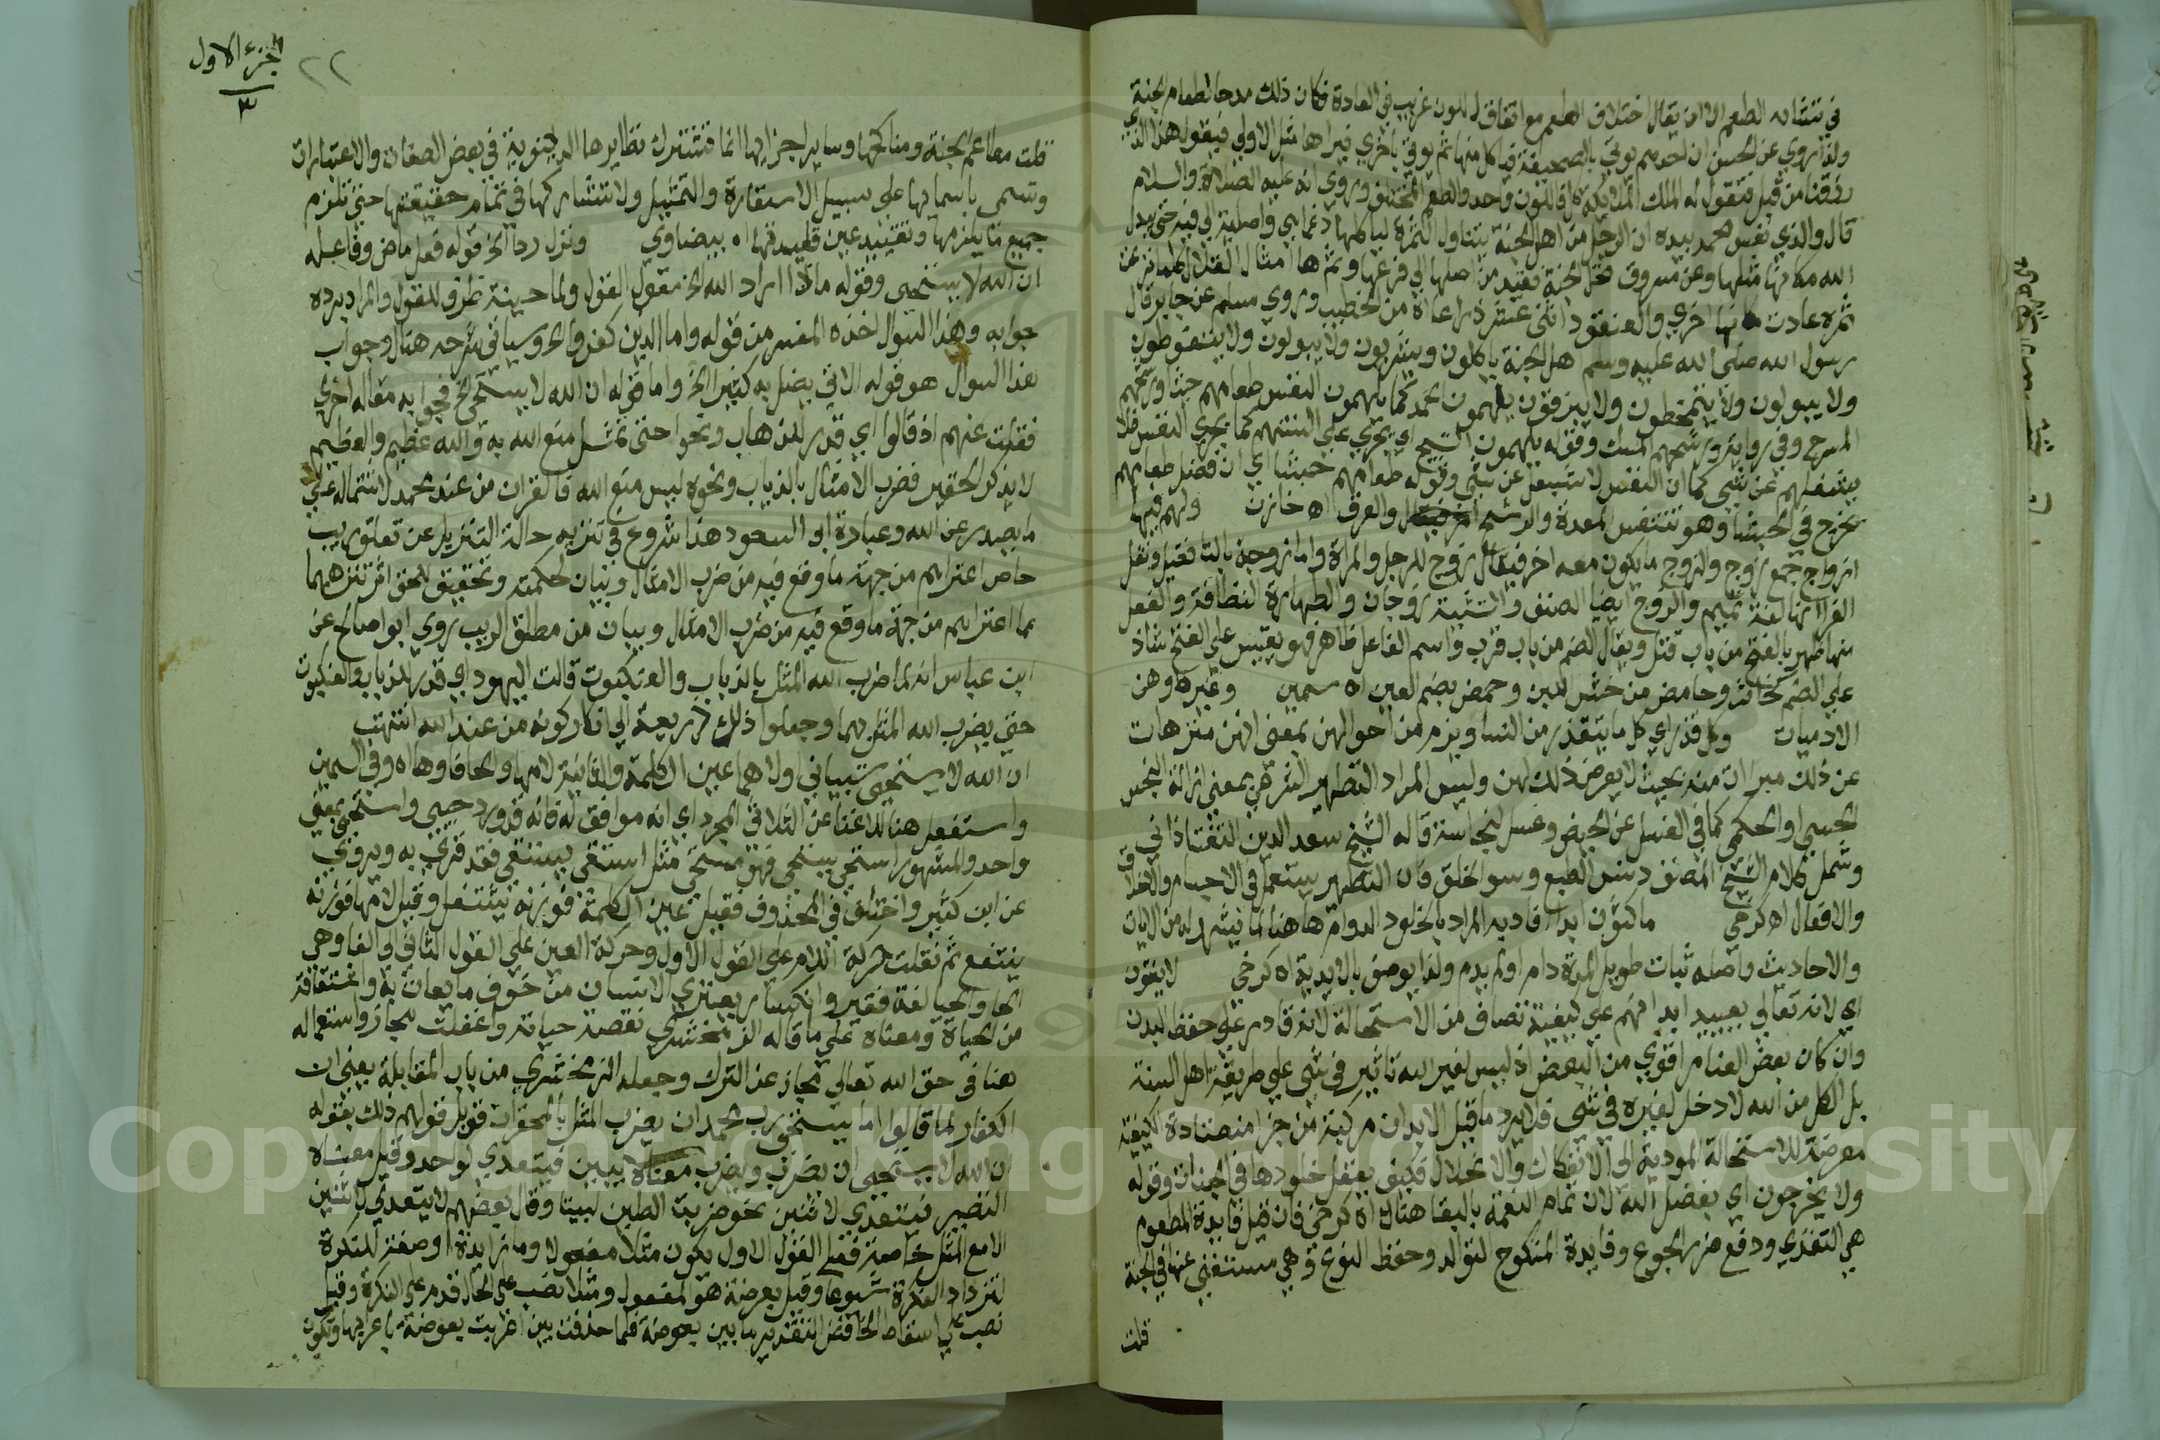 في تشابه الطعم الا ان يقال اختلاف الطعم مع اتفاق اللون غريب في العادة فكان ذلك مدحا لطعام الجنة
ولذا روي عن الحسن ان احدهم يوتي بالصحيفة فياكل منها ثم يوتي باخري فيراها مثل الاولي فيقول هذا الذي
رزقنا من قبل فتقول له الملائكة كل فاللون واحد والطعم مختلف وروي انه عليه الصلاة والسلام
قال والذي نفس محمد بيده ان الرجل من اهل الجنة يتناول الثمرة لياكلها فما هي واصلة الي فيه حتي يبدل
الله مكانها مثلها وعن مسروق نخل الجنة نضيد من اصلها الي فرعها وثمرها امثال القلال كلما نزعت
ثمرة عادت مكانها اخري والعنقود اثني عشر ذراعا اه من الخطيب وروي مسلم عن جابر قال
رسول الله صلي الله عليه وسلم اهل الجنة ياكلون ويشربون ولا يبولون ولا يتغوطون
ولا يبولون ولا يتمخطون ولا يبزقون يلهمون الحمد كما يلهمون النفس طعامهم جشا ورشحهم
المسك وفي رواية ورشحهم المسك وقوله يلهمون التسبيح اي يجري علي السنتهم كما يجري النفس فلا
يشغلهم عن شي كما ان النفس لا يشغل عن شي وقوله طعامهم جشا اي ان فضل طعامهم
يخرج في الجشا وهو تنفس المعدة والرشح العرق اه خازن ولهم فيها
ازواج جمع زوج والزوج ما يكون معه اخر فيقال زوج للرجل والمراة واما زوجة بالتا فقليل ونقل
الفرا انها لغة تميم والزوج ايضا الصنف والتثنية زوجان والطهارة النظافة والفعل
منها طهر بالفتح من باب قتل ويقال الضم من باب قرب واسم الفاعل طاهر فهو مقيس علي الفتح شاذ
علي الضم كخاثر وحامض من خثر اللبن وحمض بضم العين اه سمين وغيرها وهن
الادميات وكل قذر اي كل ما يستقذر من النسا ويذم من احوالهن بمعني انهن منزهات
عن ذلك مبرات منه بحيث لا يعرض ذلك لهن وليس المراد التطهير الشرعي بمعني ازالة النجس
الحسي او الحكمي كما في الغسل عن الحيض وغسل النجاسة قاله الشيخ سعد الدين التفتازاني
وشمل كلام الشيخ المصنف دنس الطبع وسو الخلق فان التطهير يستعمل في الاجسام والاخلاق
والافعال اه كرخي ماكثون ابدا افاد به المراد بالخلود الدوام هاهنا لما يشهد له من الايات
والاحاديث واصله ثبات طويل المدة دام او لم يدم ولذا يوصف بالابدية اه كرخي لا يفنون
اي لانه تعالي يعيد ابدانهم علي كيفية تصان من الاستحالة لانه قادر علي حفظ البدن
وان كان بعض العناصر اقوي من البعض اذ ليس لغير الله تاثير في شي علي طريقة اهل السنة
بل الكل من الله لا دخل لغيره في شي فلا يرد ما قيل الابدان مركبة من اجزا متضادة الكيفية
معرضة للاستحالة المودية الي الانفكاك والانحلال فكيف يعقل خلودها في الجنات وقوله
ولا يخرجون اي بفضل الله لان تمام النعمة بالبقا هناك اه كرخي فان قيل فايدة المطعوم
هي التغذي ودفع ضرر الجوع وفايدة المنكوح التوالد وحفظ النوع وهي مستغني عنها في الجنة
قلت
الجزء الاول
٣
٢٢
قلت مطاعم الجنة ومناكحها وساير اجزايها انما تشترك نظايرها الدنيوية في بعض الصفات والاعتبارات
وتسمي باسمايها علي سبيل الاستعارة والتمثيل ولا تشاركها في تمام حقيقتها حتي تلزم
جميع ما يلزمها وتفيد عين فايدتها اه بيضاوي ونزل ردا الخ قوله فعل ماض وفاعله
ان الله لا يستحيي وقوله ماذا اراد الله الخ مقول القول ولما حينية ظرف للقول والمراد برده
جوابه وهذا السوال اخذه المفسر من قوله واما الذين كفروا الخ وسياتي شرحه هناك وجواب
هذا السوال هو قوله الاتي يضل به كثيرا الخ واما قوله ان الله لا يستحيي الخ فجوابه مقالة اخري
نقلت عنهم اذ قالوا اي قدر للذباب ونحوها حتي تمثل الله به والله عظيم والعظيم
لا يذكر الحقير فضرب الامثال بالذباب ونحوه ليس من الله فالقران من عند محمد لاشتماله علي
ما يصدر عن الله وعبارة ابو السعود هذا شروع في تنزيه حالة التنزيل عن تعلق ريب
خاص اعتراهم من جهة ما وقع فيه من ضرب الامثال وبيان لحكمته وتحقيق للحق اثر تنزيهها
عما اعتراهم من جهة ما وقع فيه من ضرب الامثال وبيان من مطلق الريب روي ابو صالح عن
ابن عباس انه لما ضرب الله المثل بالذباب والعنكبوت قالت اليهود اي قدر للذباب والعنكبوت
حتي يضرب الله المثل بهما وجعلوا ذلك ذريعة الي انكار كونه من عند الله انتهت
ان الله لا يستحيي بيانين ولاهما عين الكلمة والثانية لامها والحا فاوها اه وفي السمين
واستفعل هنا للاغنا عن الثلاثي المجرد اي انه موافق له فانه قد ورد حيي واستحيي بمعني
واحد والمشهور استحيي يستحيي فهو مستحي مثل استقي يستقي فقد قري به ويروي
عن ابن كثير واختلف في المحذوف فقيل عين الكلمة فوزنه يستفل وقيل لامها فوزنه
يستفع ثم نقلت حركة اللام علي القول الاول وحركة العين علي القول الثاني الي الفا وهي
الحا والحيا لغة تغير وانكسار يعتري الانسان من خوف ما يعاب به واشتقاقه
من الحياة ومعناه علي ما قاله الزمخشري نقصت حياته واعتلت مجازا واستعماله
هنا في حق الله تعالي مجاز عن الترك وجعله الزمخشري من باب المقابلة يعني ان
الكفار لما قالوا اما يستحي رب محمد ان يضرب المثل بالمحقرات قوبل قولهم ذلك بقوله
ان الله لا يستحيي ان يضرب ويضرب معناه يبين فيتعدي لواحد وقيل معناه
التصيير فيتعدي لاثنين نحو ضربت الطين لبنا وقال بعضهم لا يتعدي لاثنين
الا مع المثل خاصة فعلي القول الاول يكون مثلا مفعولا وما زايدة او صفة للنكرة
لتزداد النكرة شيوعا وقيل بعوضة هو المفعول ومثلا نصب علي الحال قدم علي النكرة وقيل
نصب علي اسقاط الخافض التقدير ما بين بعوضة فلما حذفت بين اعربت بعوضة باعرابها وتكون
Copyright © King Saud University